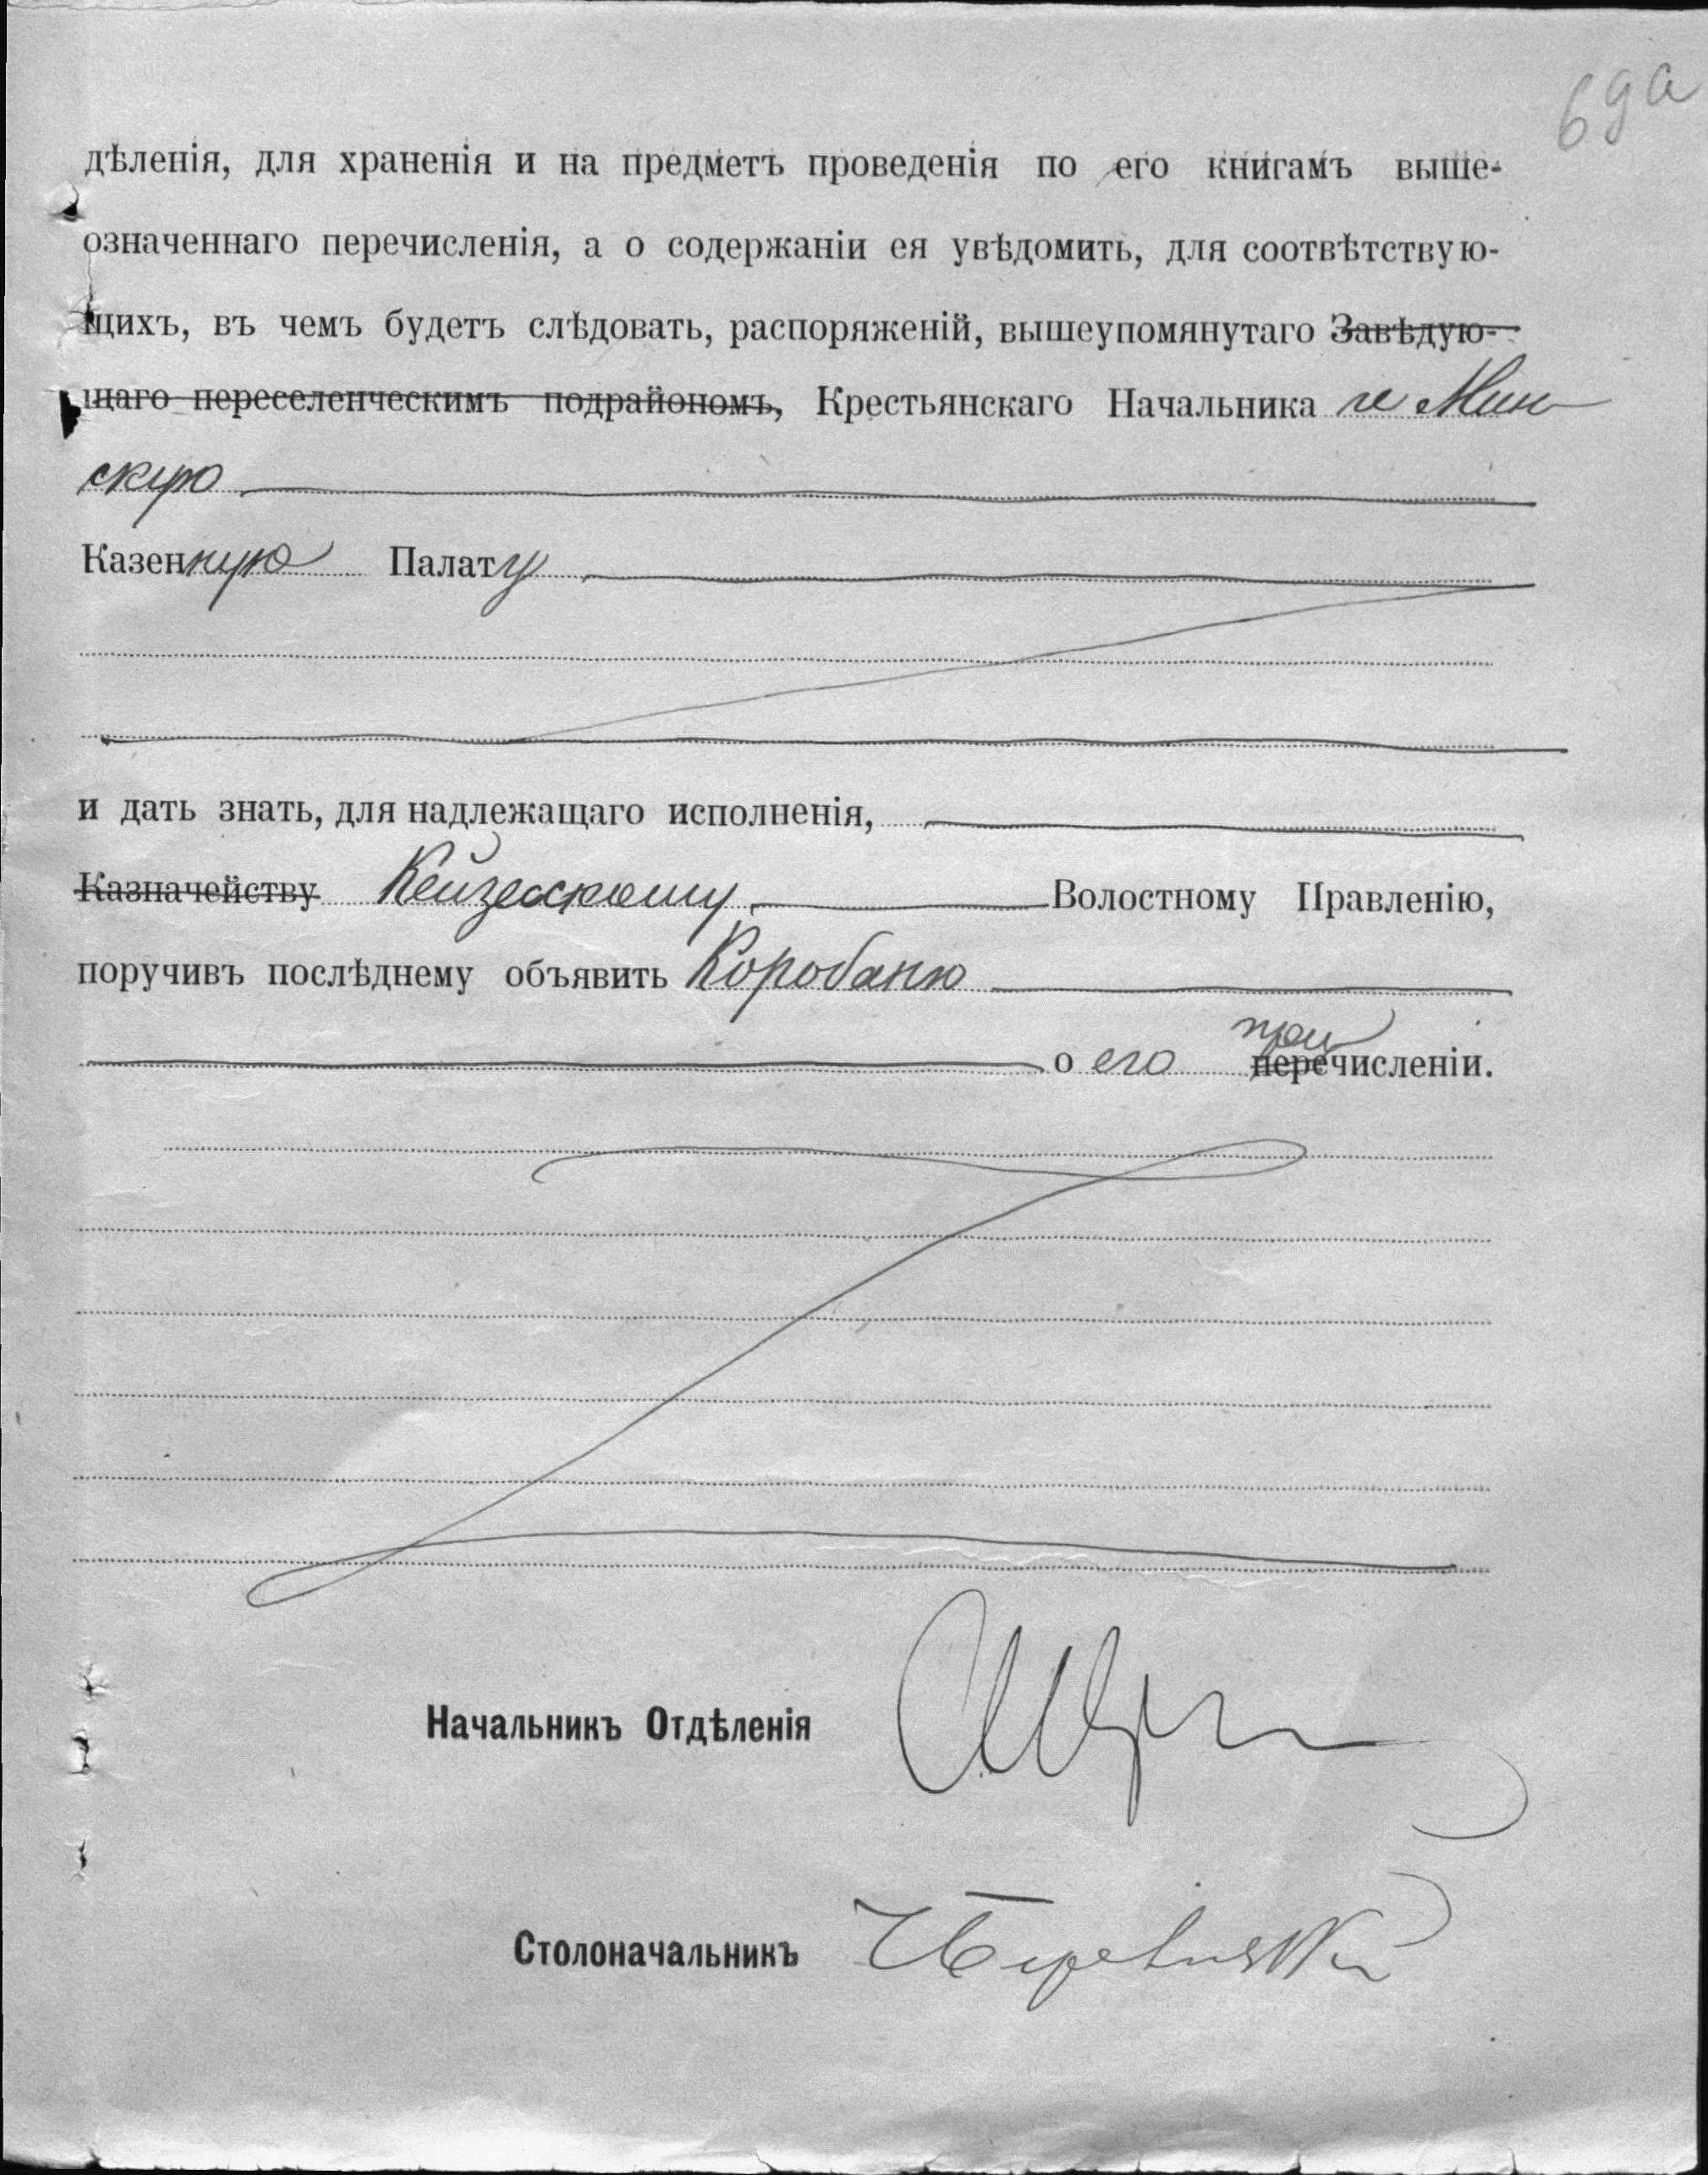 69а
дѣленія, для храненія и на предметъ проведенія по его книгамъ выше-
означеннаго перечисленія, а о содержаніи ея увѣдомить, для соотвѣтствую-
щихъ, въ чемъ будетъ слѣдовать, распоряженій, вышеупомянутаго Завѣдую-
щаго переселенческимъ подрайономъ, Крестьянскаго Начальника и Мин
скую
Казенную Палату
и дать знать, для надлежащаго исполненія,
Казначейству Кейзесскому Волостному Правленію,
поручивъ послѣднему объявить Коробаню
при
о его перечисленіи.
Начальникъ Отдѣленія
Столоначальникъ